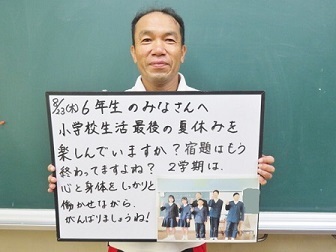 8/23(木)6年生のみなさんへ
小学校生活最後の夏休みを
楽しんでいますか？宿題はもう
終わってますよね？2学期は、
心と身体をしっかりと
働かせながら、
がんばりましょうね！